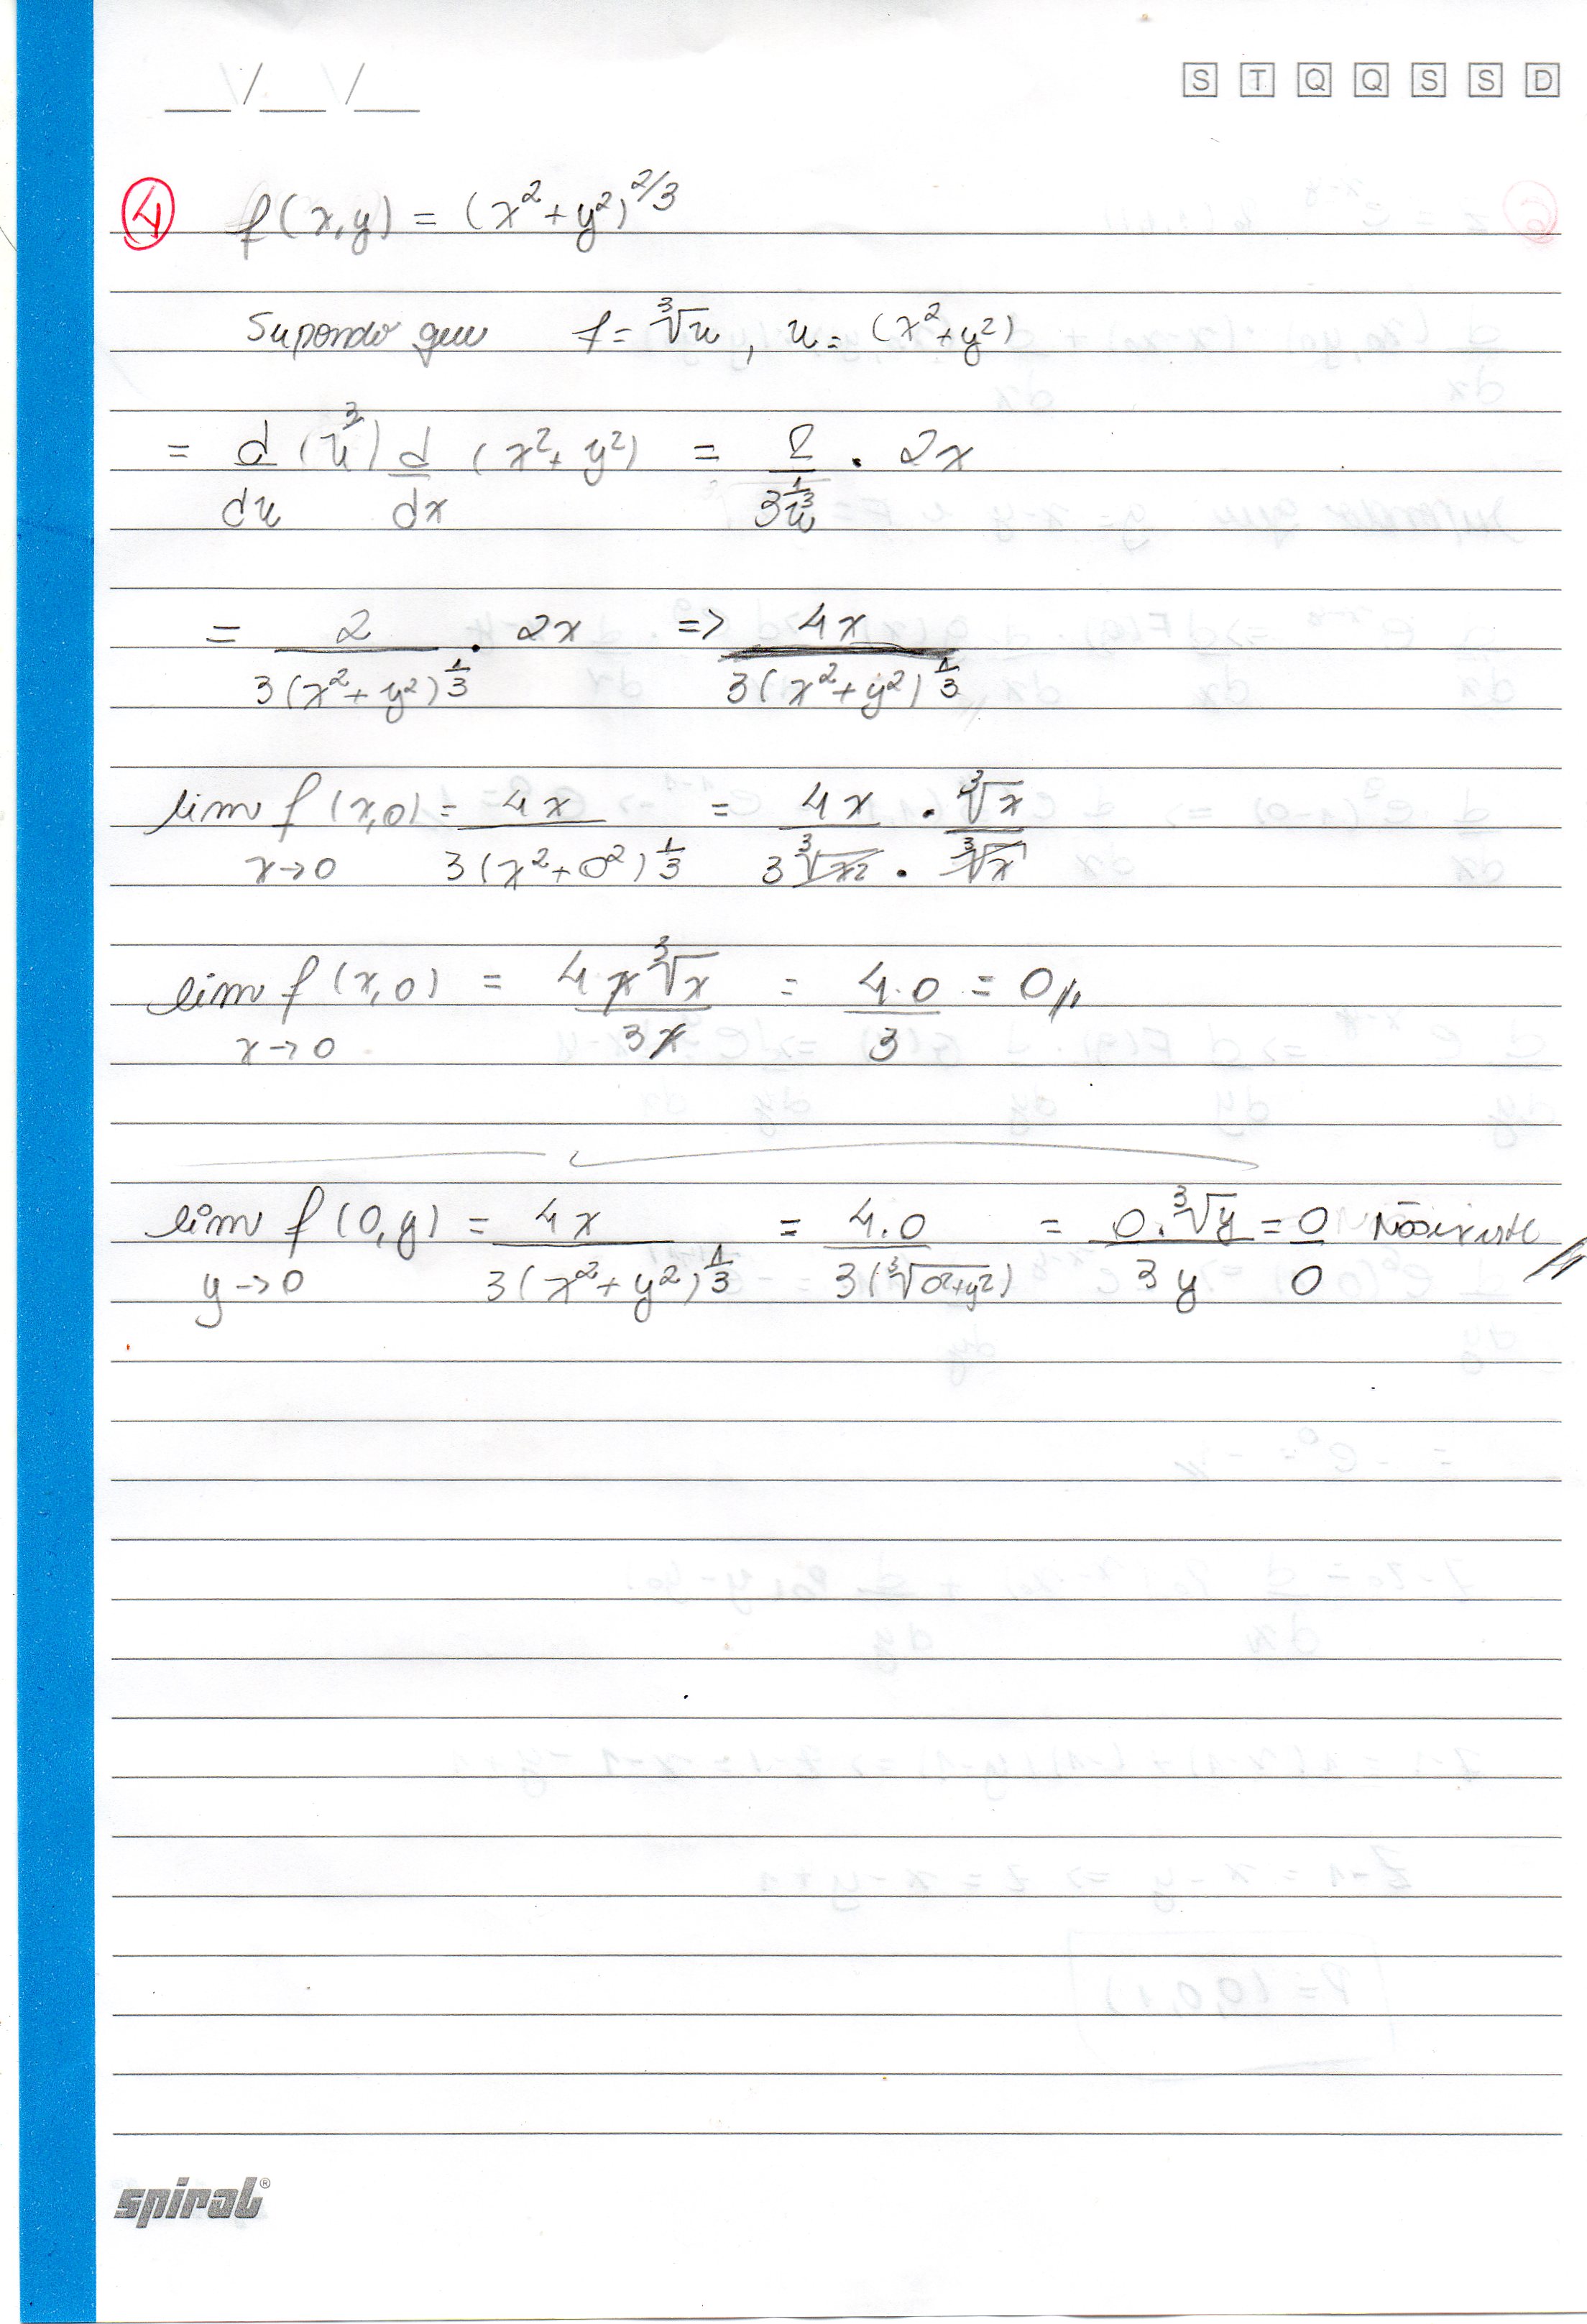 __/__/__ S T Q Q S S D
4 f(x,y) = (x²+y²)^2/3
Supondo que f = ∛u, u = (x²+y²)
= d/du (u^3) d/dx (x²+y²) = 2/(3u^1/3) . 2x
= 2/(3(x²+y²)^1/3) . 2x => 4x/(3(x²+y²)^1/3)
lim x→0 f(x,0) = 4x/(3(x²+0²)^1/3) = 4x/(3∛x²) . ∛x/∛x
lim x→0 f(x,0) = 4x∛x/3x = 4.0/3 = 0//
lim y→0 f(0,y) = 4x/(3(x²+y²)^1/3) = 4.0/(3(∛0²+y²)) = 0.∛y/3y = 0/0 Não existe //
spiral®